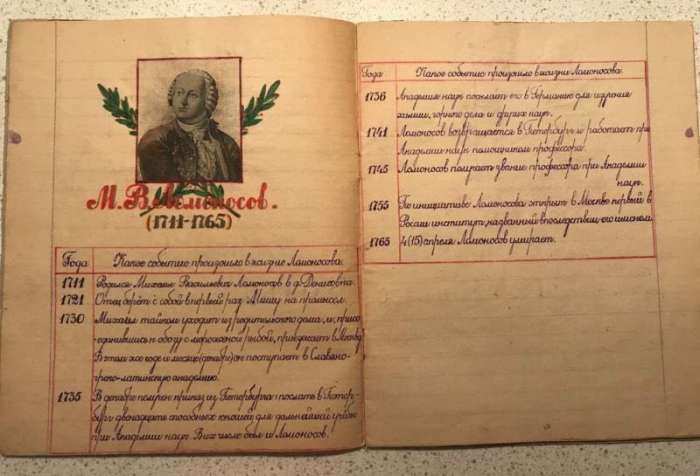 М. В. Ломоносов.
(1711-1765)
Года Какое событие произошло в жизни Ломоносова
1711 Родился Михаил Васильевич Ломоносов в д. Денисовка
1721 Отец берёт с собой в первый раз Мишу на промысел.
1730 Михаил тайком уходит из родительского дома, и, присо-
единившись к обозу с мороженой рыбой, приезжает в Москву
В этом же годе и месяце (декабре) он поступает в Славяно-
греко-латинскую академию.
1735 В декабре получен приказ из Петербурга: послать в Петер-
бург двенадцать способных юношей для дальнейшей учебы
при Академии наук. В их числе был и Ломоносов.
Года Какое событие произошло в жизни Ломоносова
1736 Академия наук посылает его в Германию для изучения
химии, горного дела и других наук.
1741 Ломоносов возвращается в Петербург и работает при
Академии наук помощником профессора.
1745 Ломоносов получает звание профессора при Академии
наук.
1755 По инициативе Ломоносова открыт в Москве первый в
России институт, названный впоследствии его именем
1765 4(15) апреля Ломоносов умирает.